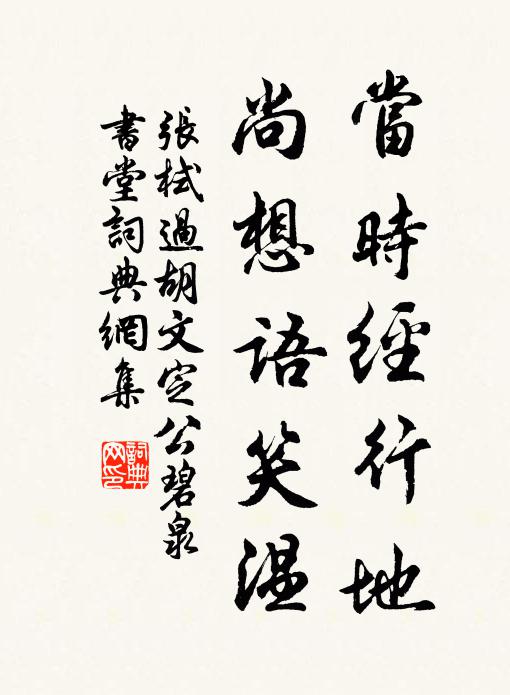 當時經行地
尚想語笑温
張栻過胡文定公碧泉
書堂詞典網集
詞典
网印